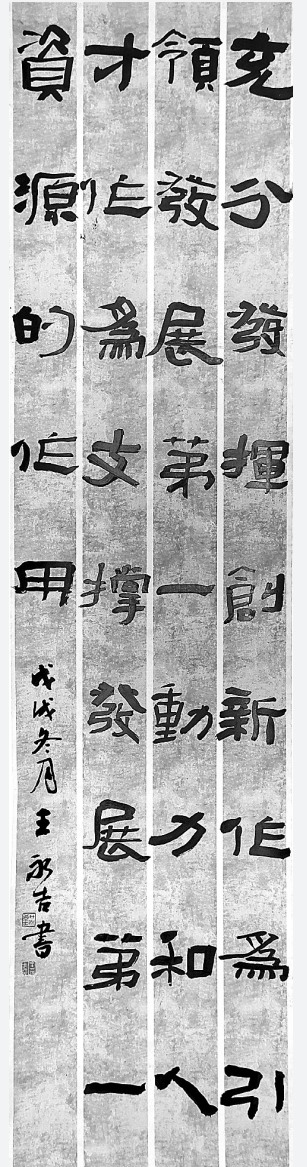 充分發揮創新作爲引
領發展第一動力和人
才作爲支撐發展第一
資源的作用
戊戌冬月王永吉書